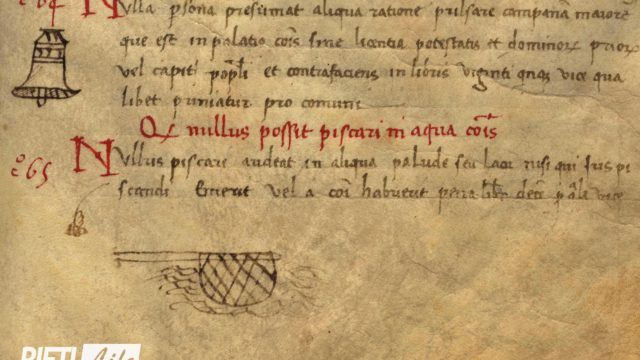 Nulla p̄sona presumat aliqua ratione pulsare campanā maiorē
que est in palatio cōis sine licentia potestatis et dominoꝝ prioꝝ
vel capitī pōpłi et contrafaciens in libris viginti qnꝗ vice qua
libet puniatur pro comuni
Qꝫ nullus possit piscari in aqua cōis
265
Nullus piscari audeat in aliqua palude seu nisi qui ius pi
scandi emerit vel a cōi habuerit pena
RIETI life